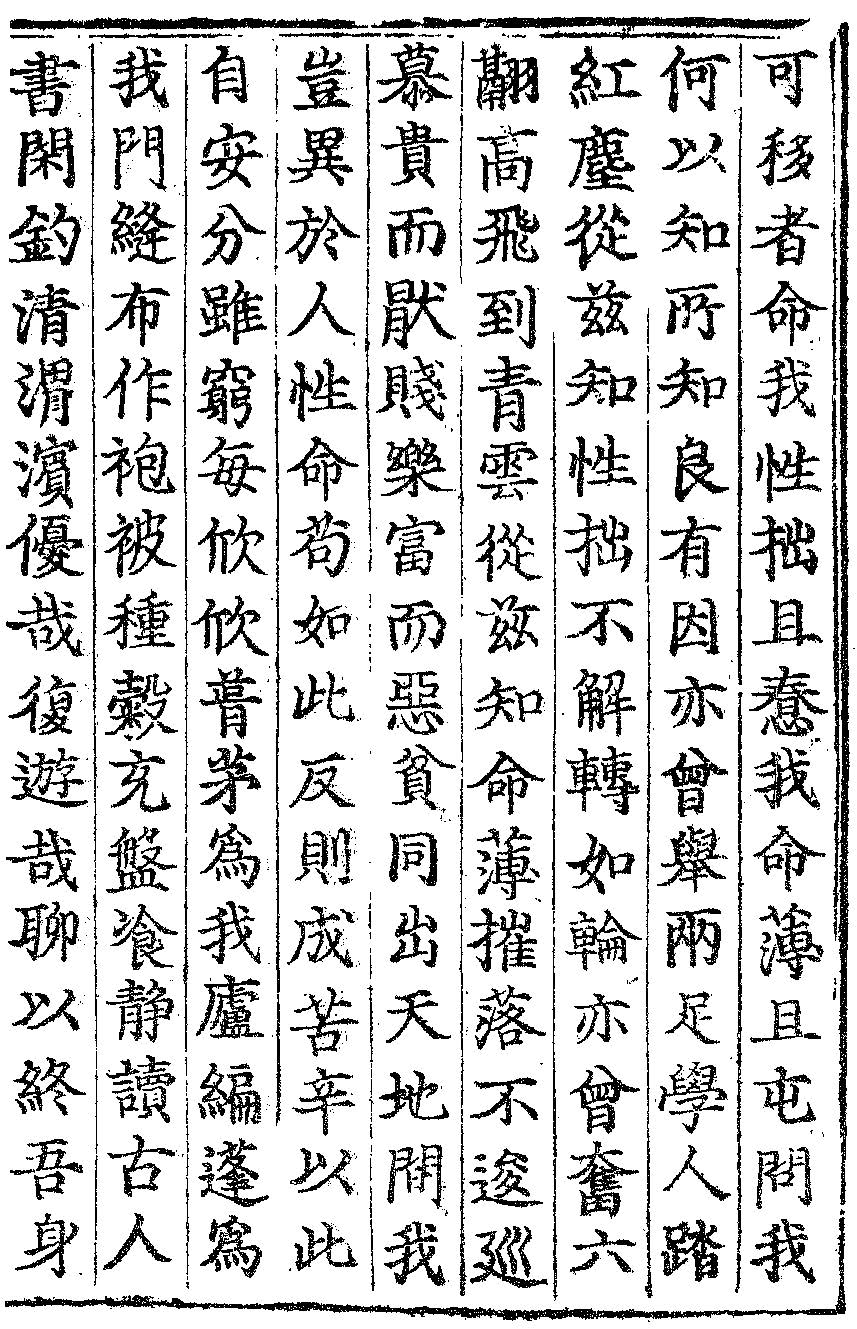 可移者命我性拙且憃我命薄且屯問我
何以知所知良有因亦曾舉兩足學人踏
紅塵從茲知性拙不解轉如輪亦曾奮六
翮高飛到青雲從茲知命薄摧落不逡巡
慕貴而厭賤樂富而惡貧同出天地間我
豈異於人性命苟如此反則成苦辛以此
自安分雖窮每欣欣葺茅爲我廬編蓬爲
我門縫布作袍被種穀充盤飡静讀古人
書閑釣清渭濱優哉復遊哉聊以終吾身